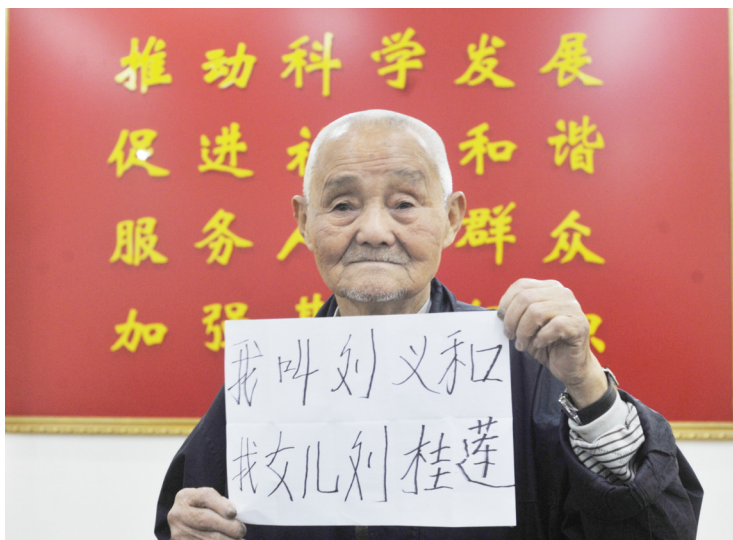 推动科学发展
促进 和谐
服务人 群众
加强
我叫刘义和
找女儿刘桂莲